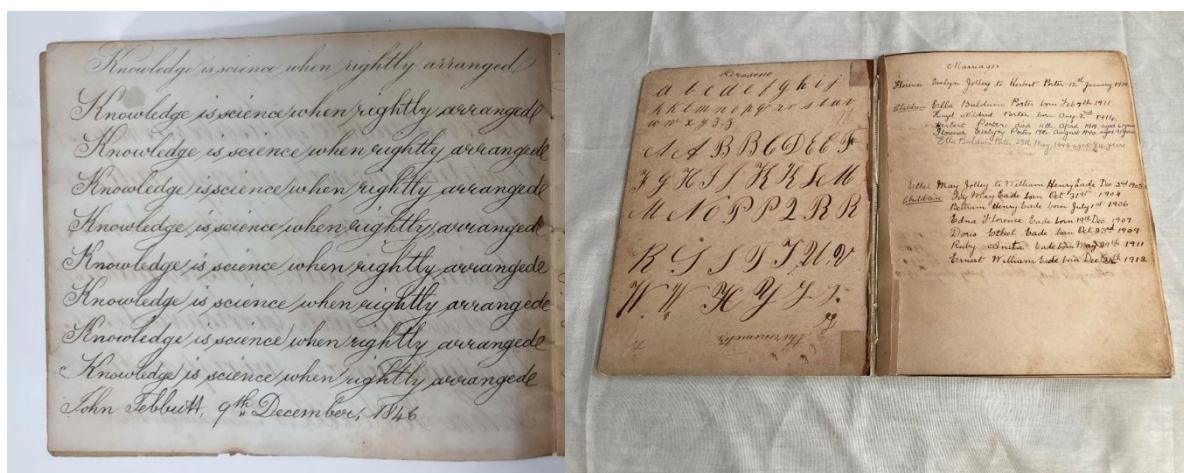 Knowledge is science when rightly arranged
Knowledge is science when rightly arranged
Knowledge is science when rightly arrangede
Knowledge is science when rightly arrangede
Knowledge is science when rightly arrangede
Knowledge is science when rightly arrangede
Knowledge is science when rightly arrangede
Knowledge is science when rightly arrangede
Knowledge is science when rightly arrangede
John Tebbutt, 9th December, 1846
Kerosene
a b c d e f g h i j
h k l m n o p q r o s t u v
w w x y z z
A A B B C D E E F
K K L M
M N O P P Q R R
W. W
Thermometer
Marriages
Florence Evelyn Jolley to Herbert Porter 12th January
Children Ella Baldwin Porter born Feb 9th 1911
Mildred Porter born Aug. 2nd 1914
Herbert Porter died April aged
Florence Evelyn Porter August aged
Ella Baldwin May, aged
Ethel May Jolley to William Henry Eade Dec 2nd 1903
Children Ivy May Eade born Oct 31st 1904
Bertram Henry Eade born July 1st 1906
Edna Florence Eade born 19th Dec 1907
Doris Ethel Eade born Oct 23rd 1909
Ruby Anita Eade born May 1911
Ernest William Eade born Dec 1912